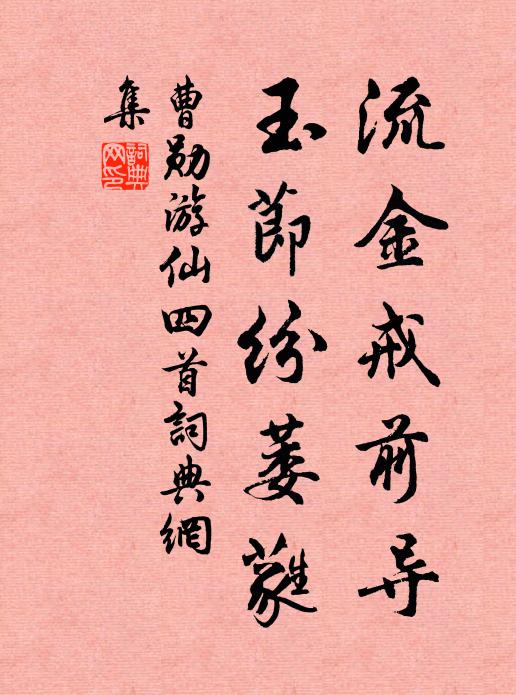 流金戒前导
玉节纷萎蕤
曹勋游仙四首詞典網
集
詞典
网印